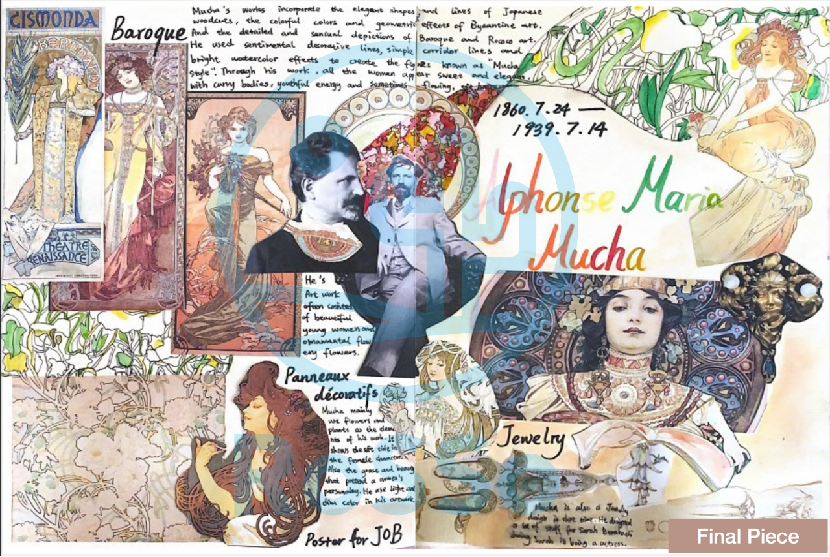 CISMONDA
BERNHARDT
THEATRE
RENAISSANCE
Baroque
Mucha's works incorporate the elegant shapes and lines of Japanese
woodcuts, the colorful colors and geometric effects of Byzantine art.
And the detailed and sensual depictions of Baroque and Rococo art.
He used sentimental decorative lines, simple
lines and
bright watercolor effects to create the
known as "Mucha
style". Through his work, all the women appear sweet and elegant
with curvy bodies, youthful energy and sometimes flowing,
1860. 7. 24 —
1939. 7. 14
Alphonse Maria
Mucha
He's
Art work
often
of beautiful
young women and
ornamental
flowers.
Panneaux
décoratifs
Mucha mainly
use flowers and
plants as the
of his work. It
shows
the female
Also the grace and beauty
that
a women's
personality. He use light and
color in his artwork.
Poster for JOB
Jewelry
Mucha is also a Jewelry
He designed
a lot of stuff for Sarah Bernhardt
being a actress.
Final Piece